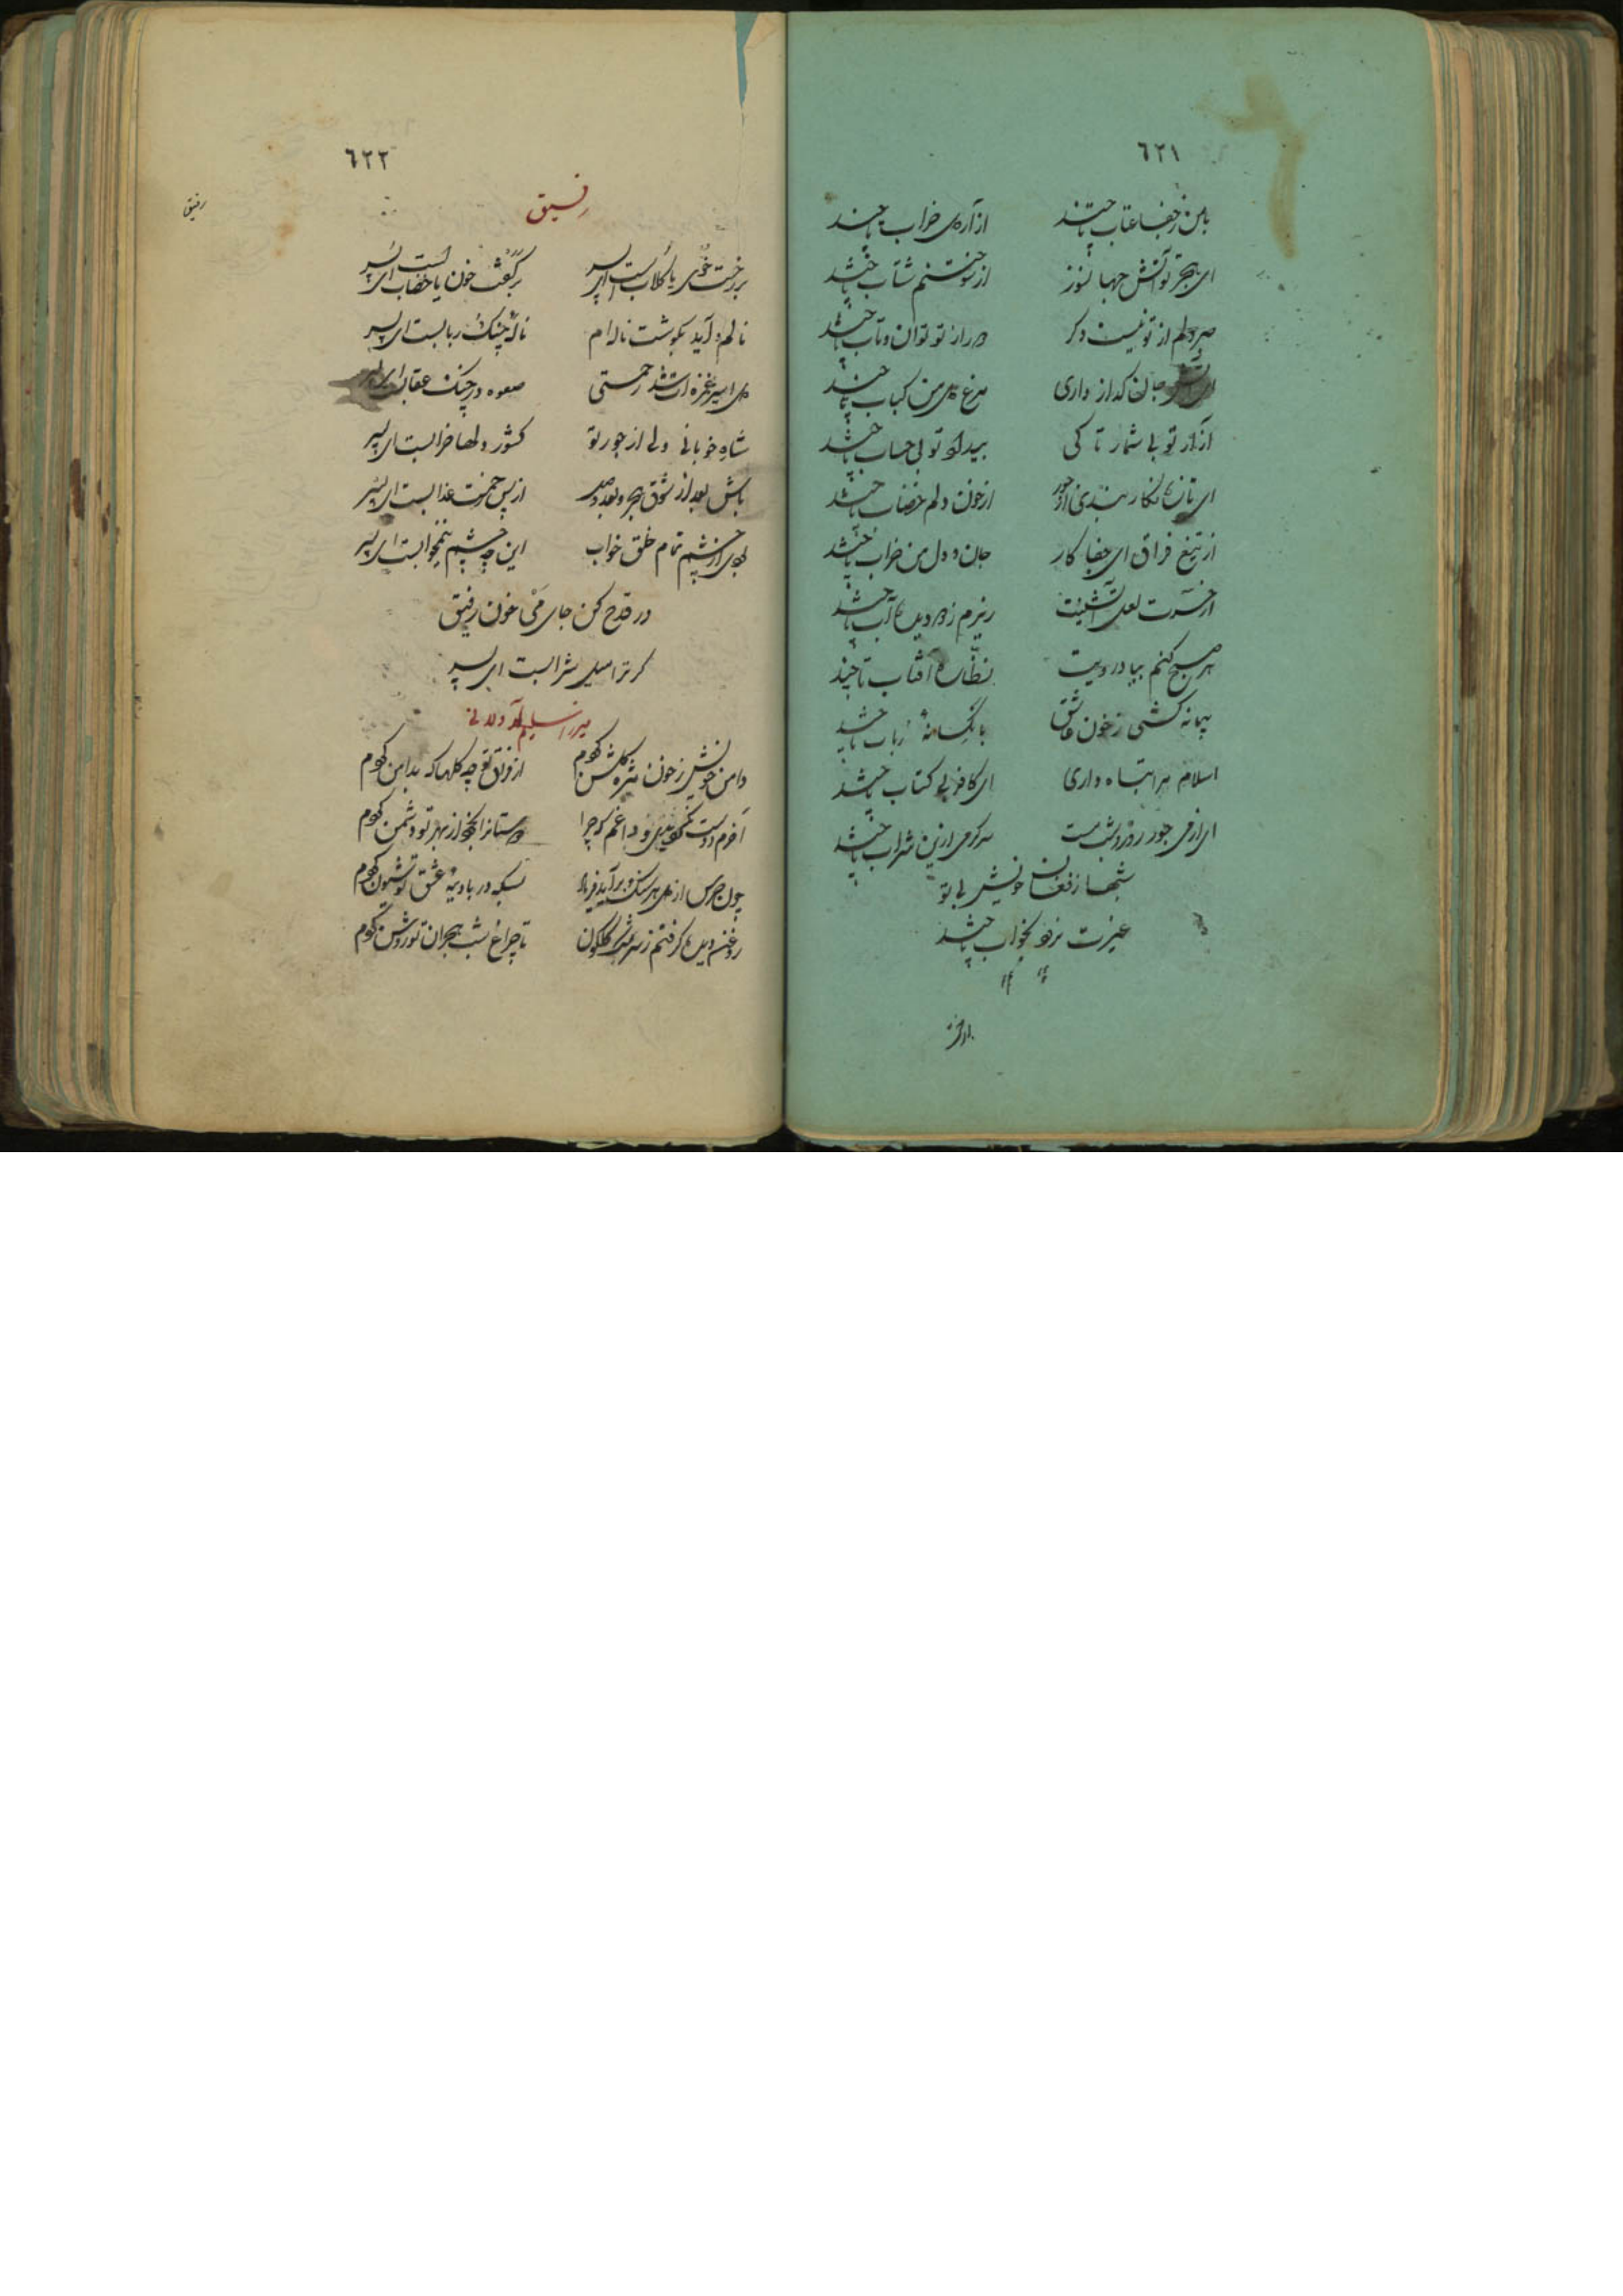 ٦٢١
با من ز جفا عتاب تا چند از آردی خراب تا چند
ای هجر تو آتش جهانسوز از سوختنم شتاب تا چند
صبر دلم از تو نیست دگر دور از تو توان و تاب تا چند
ای آتش جان گداز داری مرغ دل من کباب تا چند
آزار تو بی شمار تا کی بیداد تو بی حساب تا چند
ای تازه نگار بندی از جور از خون دلم خضاب تا چند
از تیغ فراق ای جفا کار جان و دل من خراب تا چند
از حسرت لعل آتشینت ریزم ز دو دیده آب تا چند
هر صبح کنم بیاد رویت نظاره آفتاب تا چند
پیمانه کشی ز خون عاشق با نگ رباب تا چند
اسلام تباه داری ای کافر بی کتاب تا چند
ای از می جور روز و شب مست سرگرمی ازین شراب تا چند
شبها ز فغان خویش بی تو
غیرت نرود بخواب تا چند
بر رخت
٦٢٢
رفیق
رفیق
بر رخت خوی یا گلابست ای پسر بر کفت خون یا خضابست ای پسر
نالم و آید بگوشت ناله ام ناله چنگ و ربابست ای پسر
دل اسیر غمزه ات شد رحمتی صعوه در چنگ عقابست ای پسر
شاه خوبانی ولی از جور تو کشور دلها خرابست ای پسر
باش بعد از شوق هجر و بعد وصل از پس رحمت عذابست ای پسر
بردی از چشم تمام خلق خواب این چه چشم نیمخوابست ای پسر
در قدح کن جای می خون رفیق
گر ترا میل شرابست ای پسر
میرزا سلیم
دامن خویش ز خون مژه گلشن کردم از فراق تو چه گلها که بدامن کردم
آخرم دوست نگردیدی و داغم که چرا دوستانرا بخود از بهر تو دشمن کردم
چون جرس از دل هر سنگ برآید فریاد بسکه در بادیه عشق تو شیون کردم
روغن دیده گرفتم ز سرشک گلگون تا چراغ شب هجران تو روشن کردم